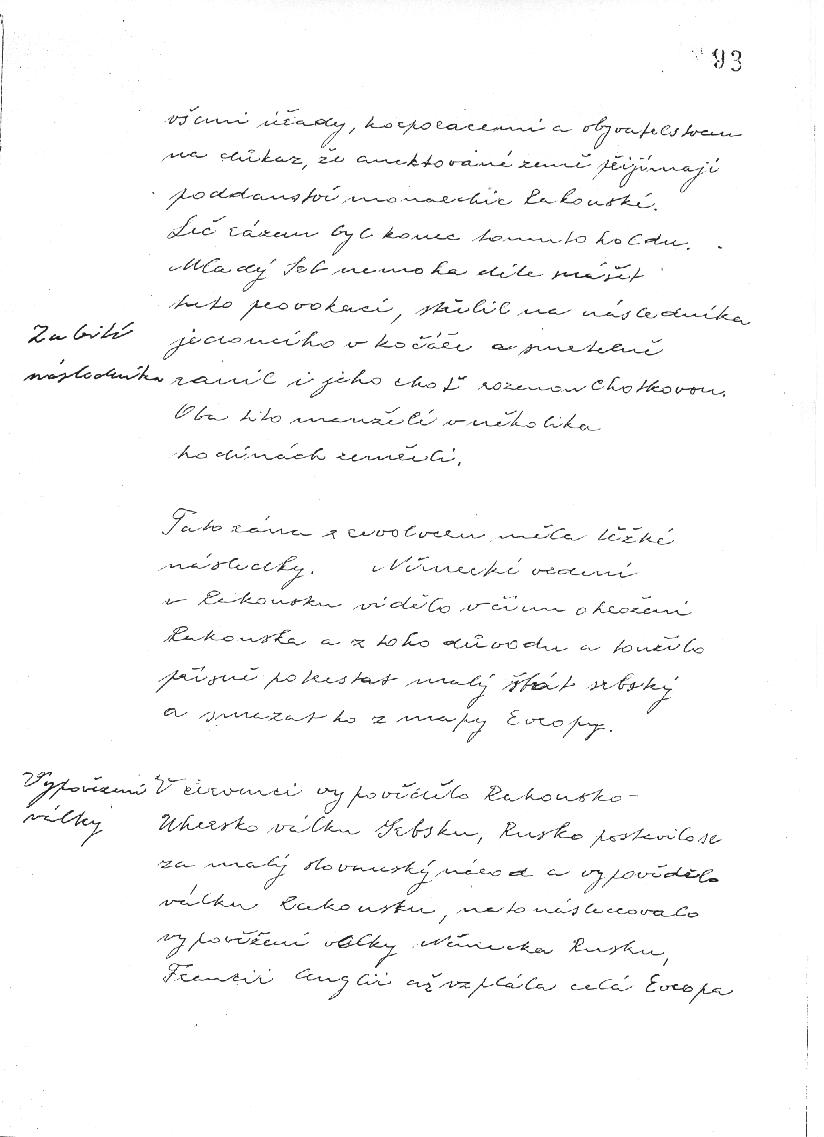 93
všemi úřady, korporacemi a obyvatelstvem
na důkaz, že anektované země přijímají
poddanství monarchie Rakouské.
Leč rázem byl konec tomuto holdu.
Mladý Srb nemoha déle snášet
tuto provokaci, střelil na následníka
Zabití
následníka
jedoucího v kočáře a smrtelně
ranil i jeho choť rozenou Chotkovou.
Oba tito manželé v několika
hodinách zemřeli.
Tato rána z revolveru měla těžké
následky. Německé vedení
v Rakousku vidělo v činu ohrožení
Rakouska a z toho důvodu a toužilo
přísně potrestat malý stát srbský
a smazat ho z mapy Evropy.
Vypovězení
války
V červenci vypovědělo Rakousko-
Uhersko válku Srbsku, Rusko postavilo se
za malý slovanský národ a vypovědělo
válku Rakousku, na to následovalo
vypovězení války Německa Rusku,
Francii Anglii až vzplála celá Evropa